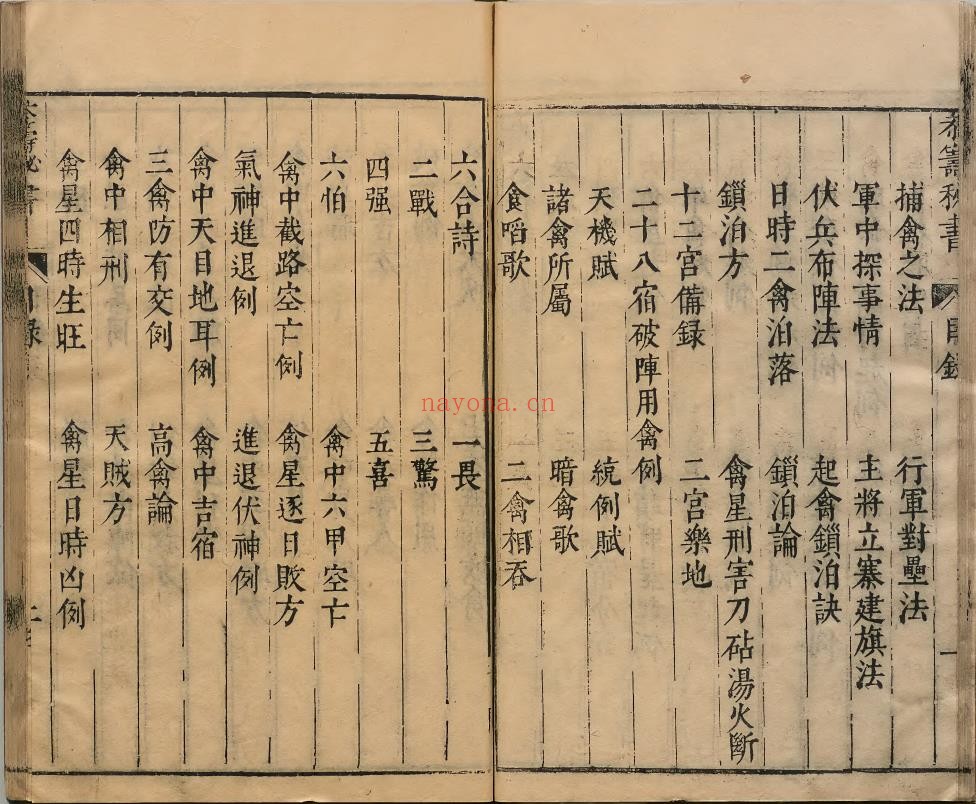 禽籌秘書 目錄 一
捕禽之法 行軍對壘法
軍中探事情 主將立寨建旗法
伏兵布陣法 起禽鎖泊訣
日時二禽泊落 鎖泊論
鎖泊方 禽星刑害刀砧湯火斷
十二宮備録 二宮樂地
二十八宿破陣用禽例
天機賦 統例賦
諸禽所屬 暗禽歌
食啗歌 二禽相吞
六合詩 一畏
二戰 三驚
四强 五喜
六怕 禽中六甲空亡
禽中截路空亡例 禽星逐日敗方
氣神進退例 進退伏神例
禽中天目地耳例 禽中吉宿
三禽防有交例 高禽論
禽中相刑 天賊方
禽星四時生旺 禽星日時凶例
秘書 目録
nayona.cn